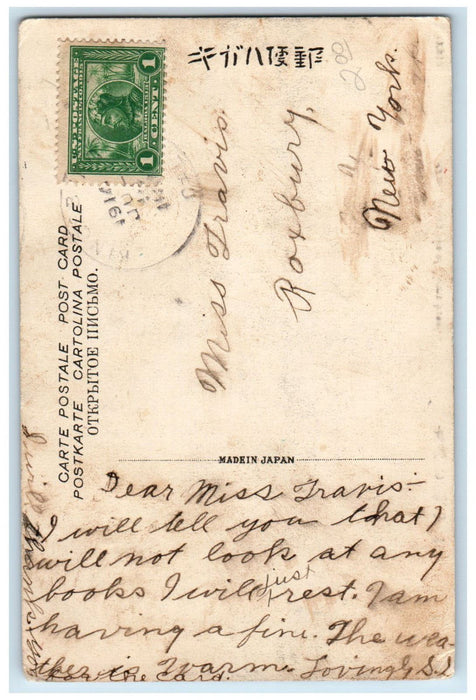 キガハ便郵
U.S. POSTAGE
1 CENT 1
1916
CARTE POSTALE POST CARD
POSTKARTE CARTOLINA POSTALE
ОТКРЫТОЕ ПИСЬМО.
Miss Travis.
Roxbury,
New York.
MADE IN JAPAN
Dear Miss Travis-
I will tell you that I
will not look at any
books I will just rest. I am
having a fine. The wea-
ther is warm. Lovingly
for the card.